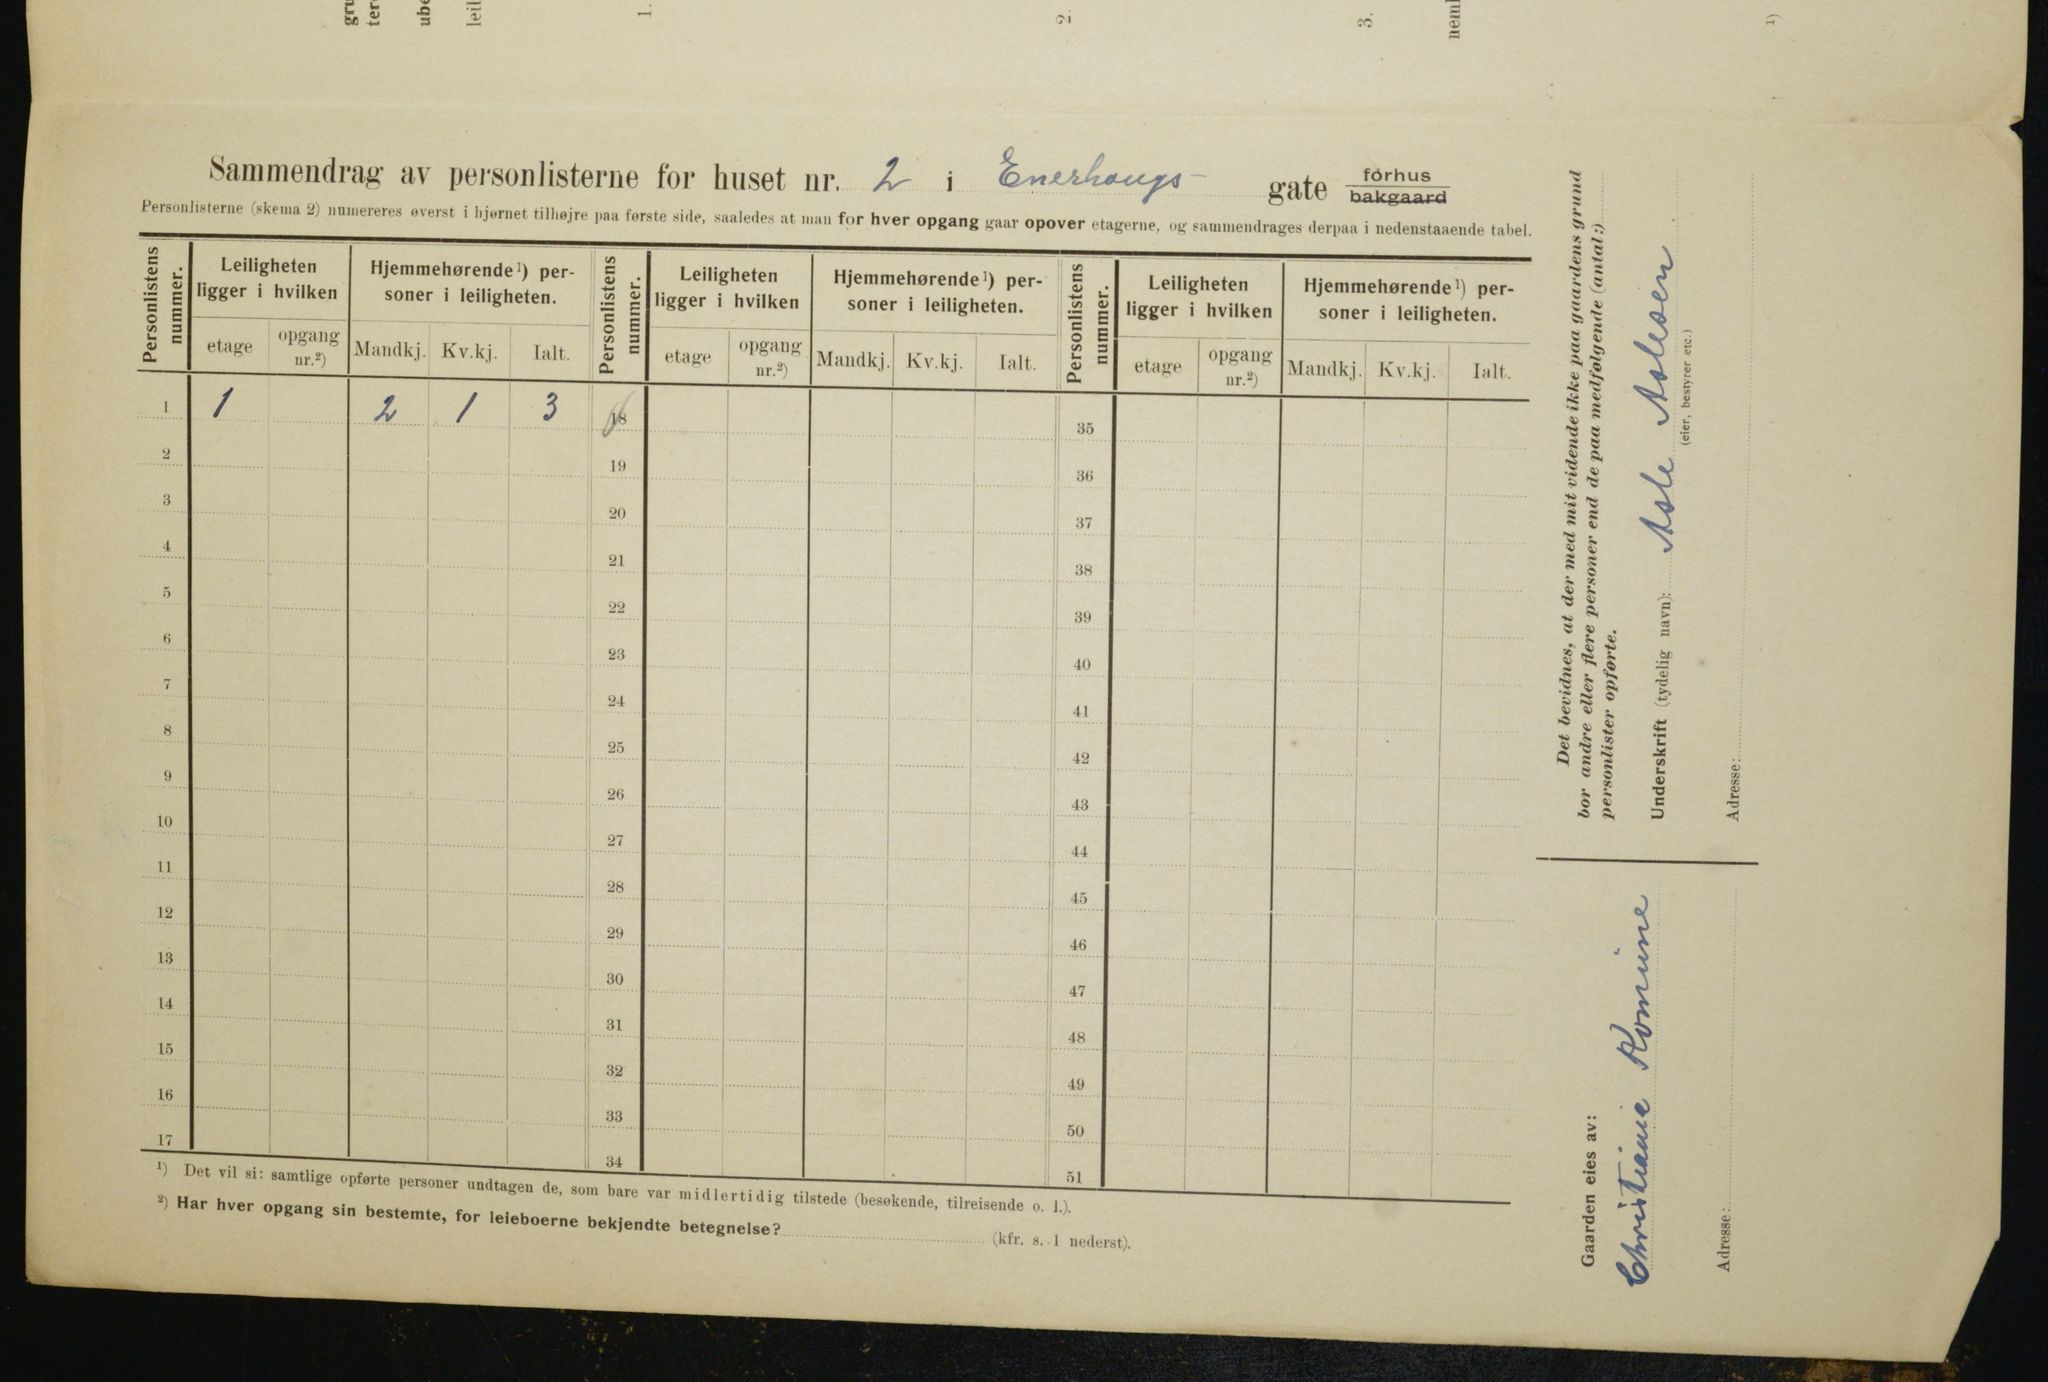 gru
ter
ube
leil
1.
2.
3.
neml
1)
Sammendrag av personlisterne for huset nr. 2 i Enerhougs gate forhus
bakgaard
Personlisterne (skema 2) numereres øverst i hjørnet tilhøjre paa første side, saaledes at man for hver opgang gaar opover etagerne, og sammendrages derpaa i nedenstaaende tabel.
Personlistens nummer. Leiligheten ligger i hvilken Hjemmehørende 1) personer i leiligheten. Personlistens nummer. Leiligheten ligger i hvilken Hjemmehørende 1) personer i leiligheten. Personlistens nummer. Leiligheten ligger i hvilken Hjemmehørende 1) personer i leiligheten.
etage opgang nr.2) Mandkj. Kv.kj. Ialt. etage opgang nr.2) Mandkj. Kv.kj. Ialt. etage opgang nr.2) Mandkj. Kv.kj. Ialt.
1 1 2 1 3 18 35
2 19 36
3 20 37
4 21 38
5 22 39
6 23 40
7 24 41
8 25 42
9 26 43
10 27 44
11 28 45
12 29 46
13 30 47
14 31 48
15 32 49
16 33 50
17 34 51
1) Det vil si: samtlige opførte personer undtagen de, som bare var midlertidig tilstede (besøkende, tilreisende o. l.).
2) Har hver opgang sin bestemte, for leieboerne bekjendte betegnelse? (kfr. s. 1 nederst).
Det bevidnes, at der med mit vidende ikke paa gaardens grund
bor andre eller flere personer end de paa medfølgende (antal:)
personlister opførte.
Underskrift (tydelig navn): Asle Aslesen
(eier, bestyrer etc.)
Adresse:
Gaarden eies av:
Christiania Komune
Adresse: